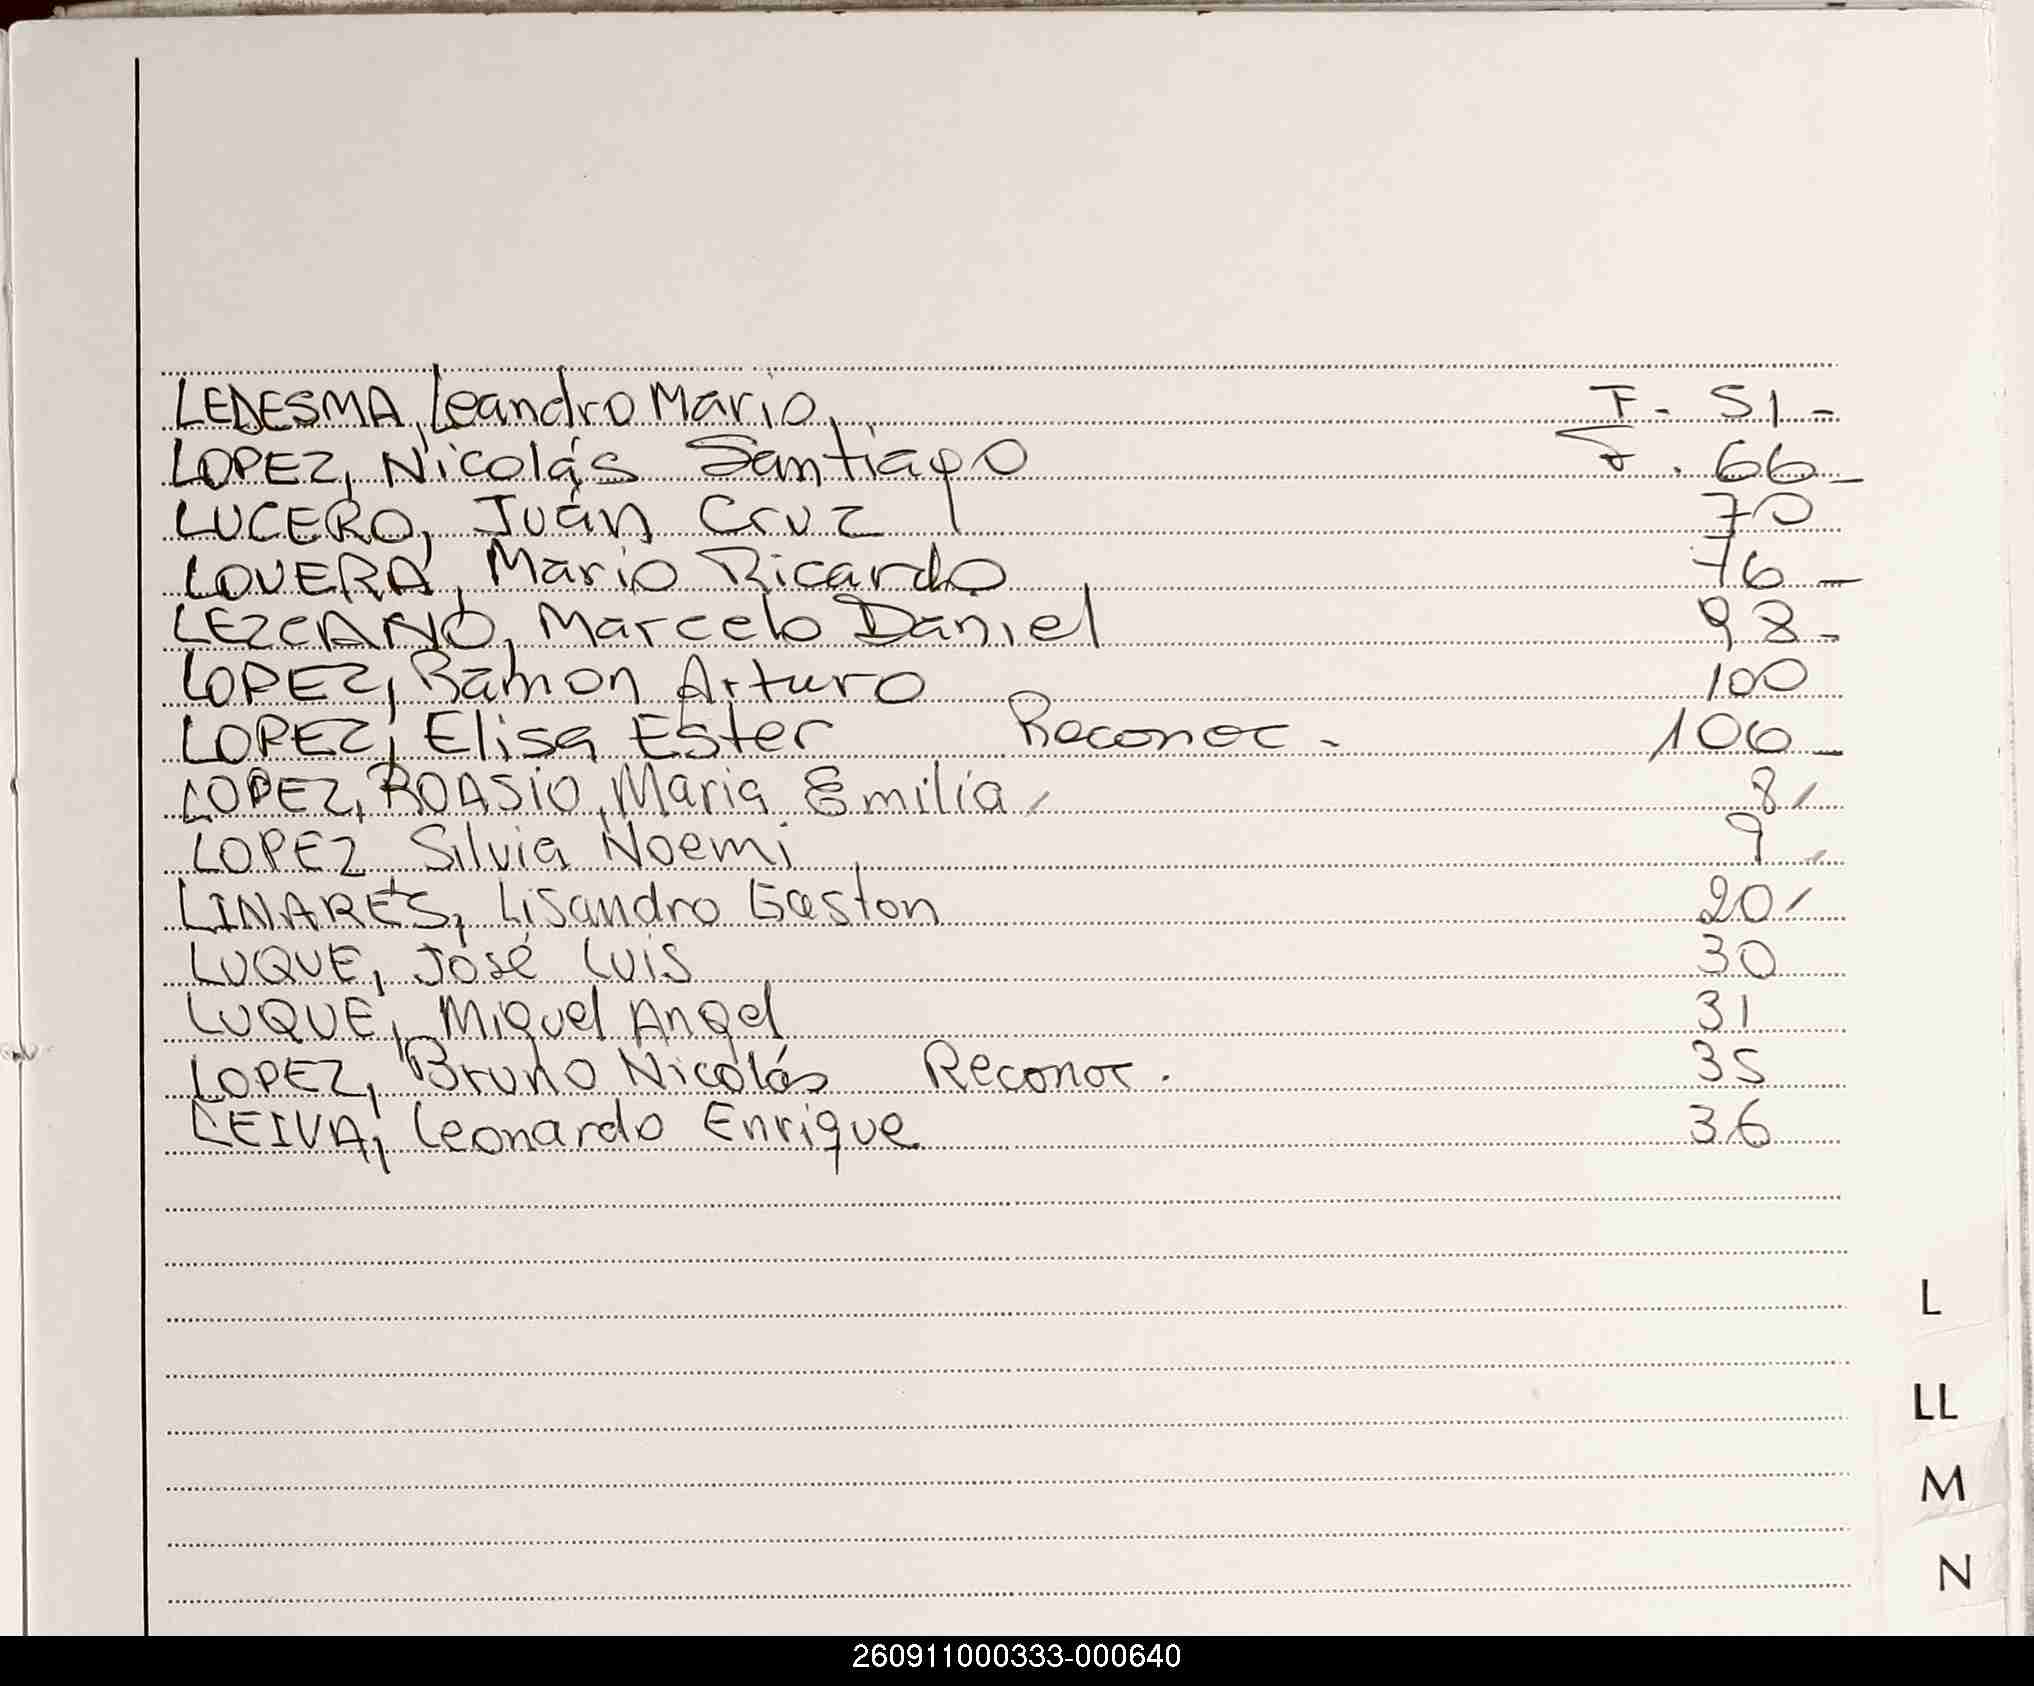 LEDESMA, Leandro Mario, F. 51 -
LOPEZ, Nicolás Santiago F. 66 -
LUCERO, Juán Cruz 70
LOVERA, Mario Ricardo 76 -
LEZCANO, Marcelo Daniel 98 -
LOPEZ, Ramon Arturo 100
LOPEZ, Elisa Ester Reconoc - 106 -
LOPEZ, ROASIO, Maria Emilia 8
LOPEZ Silvia Noemi 9
LINARES, Lisandro Gaston 20
LUQUE, José Luis 30
LUQUE, Miguel Angel 31
LOPEZ, Bruno Nicolás Reconoc. 35
LEIVA, Leonardo Enrique 36
L
LL
M
N
260911000333-000640